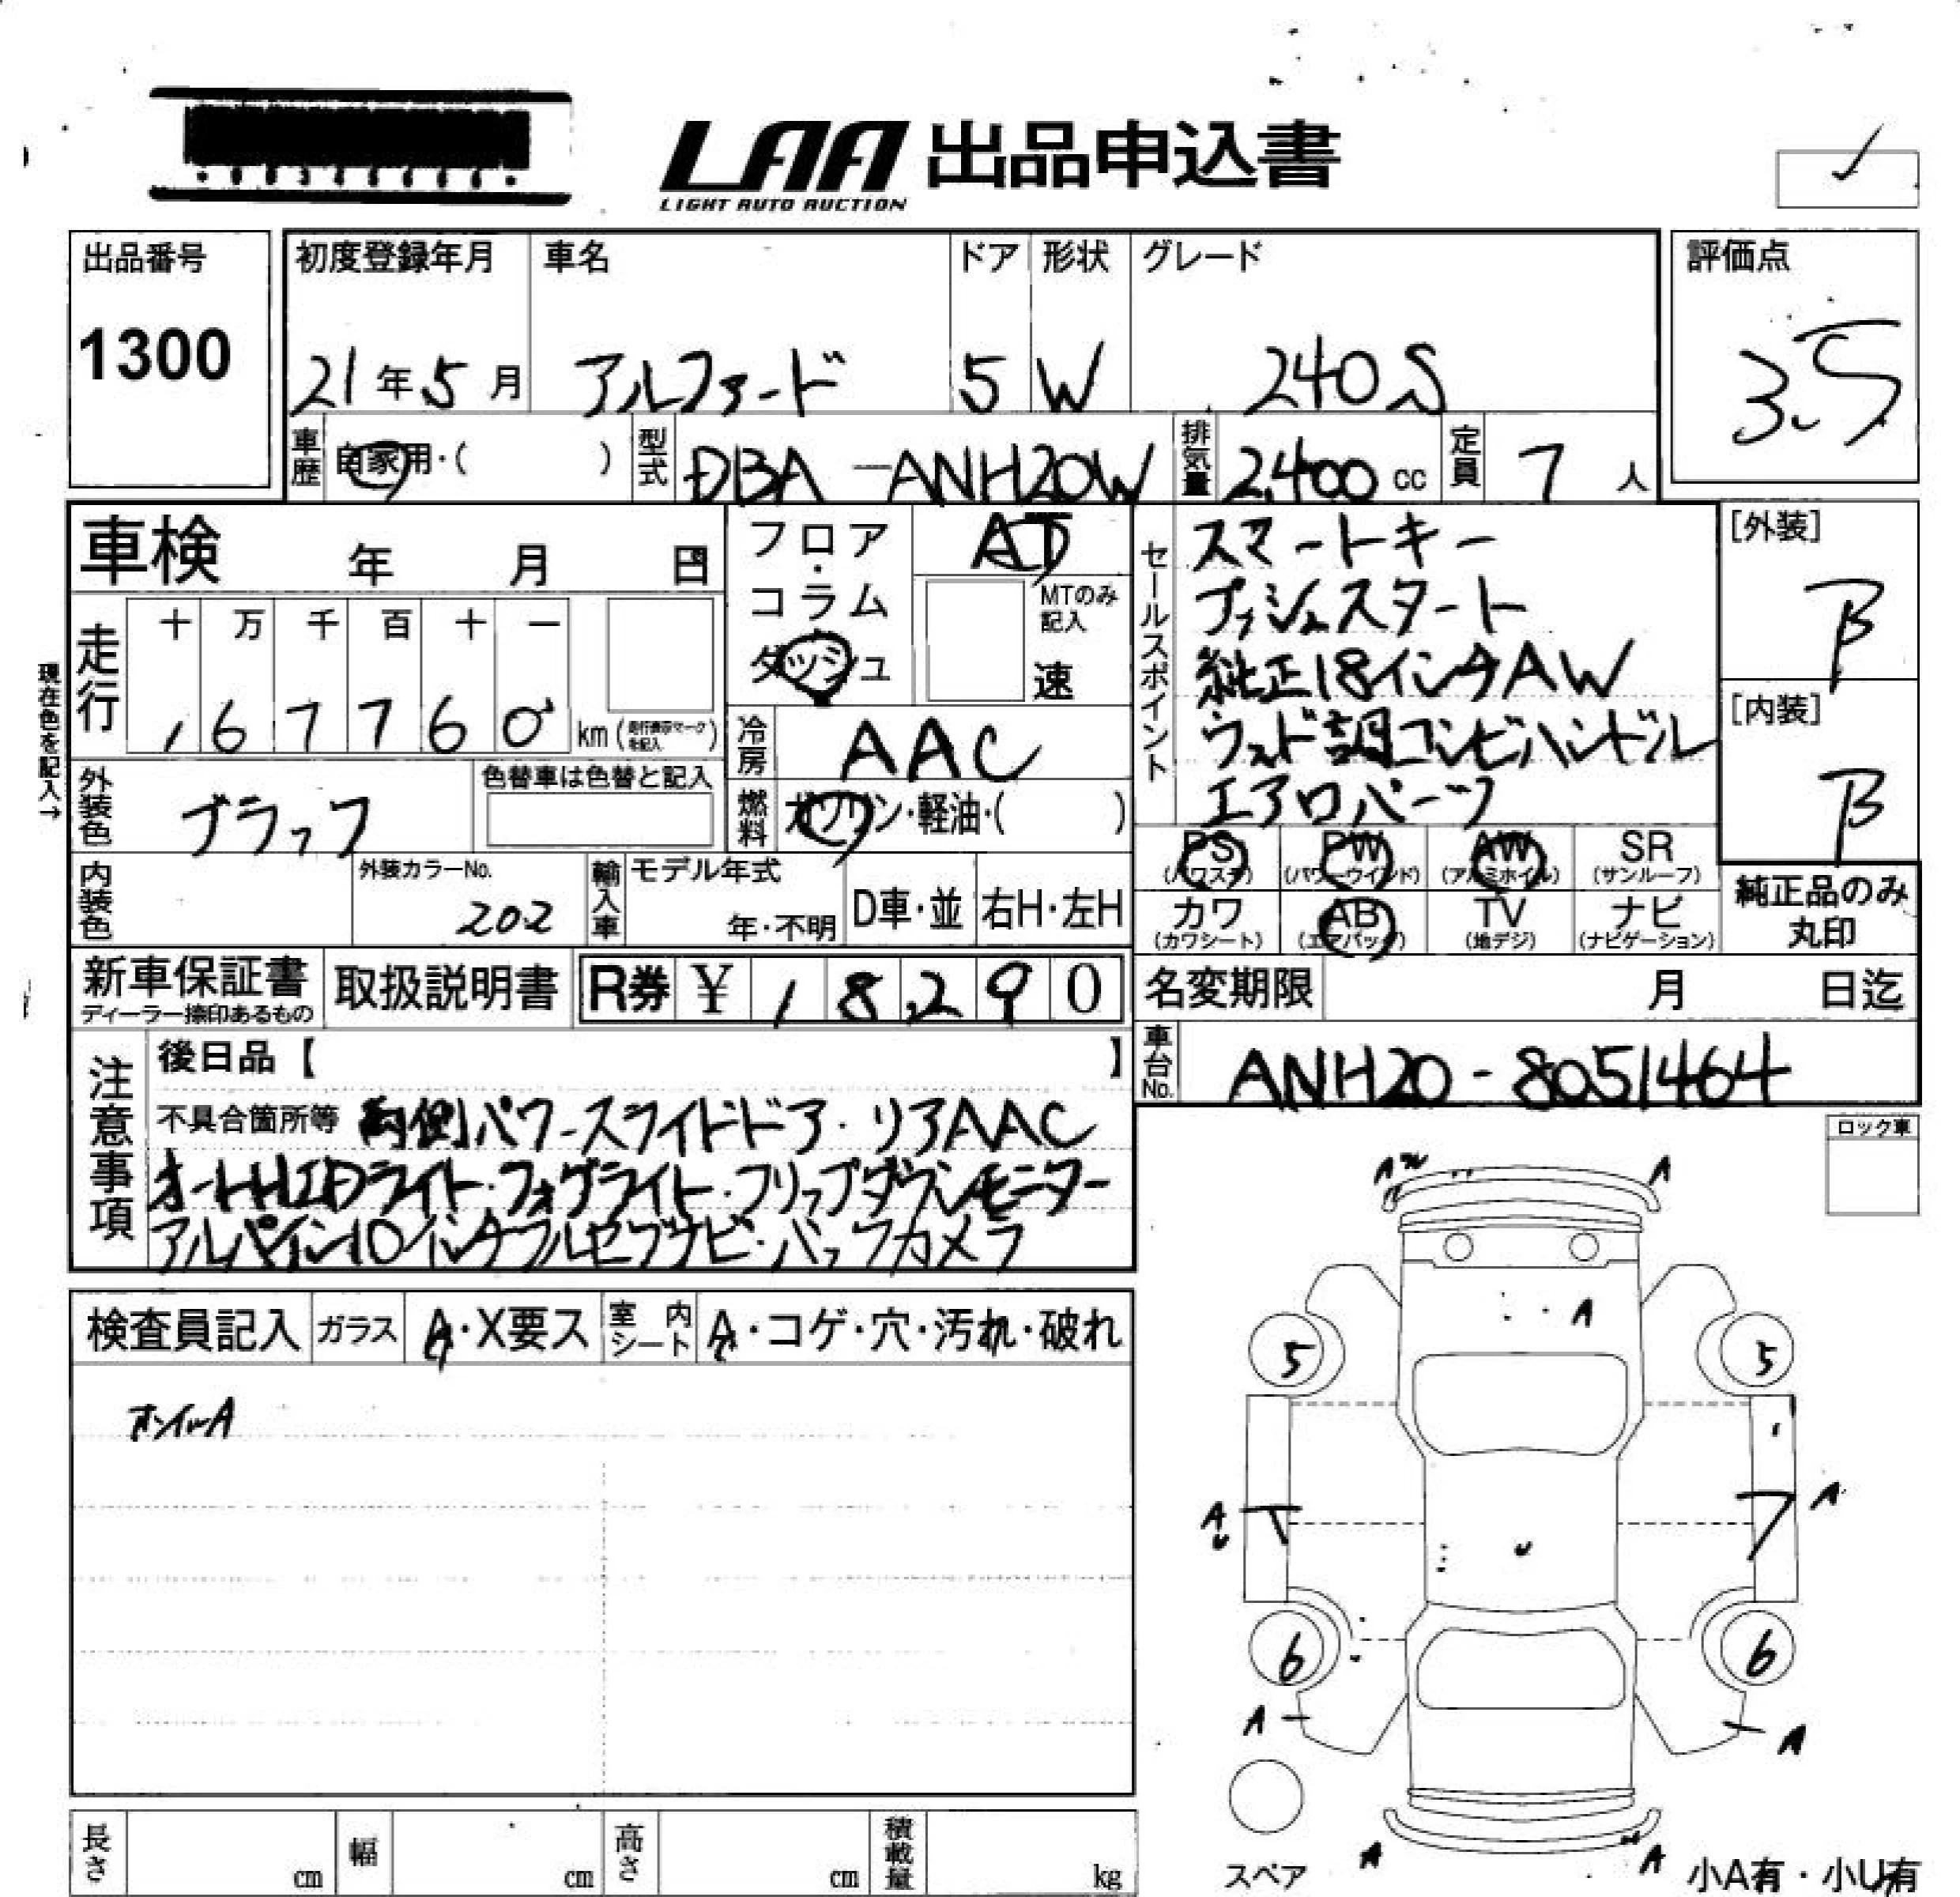 LAA 出品申込書
LIGHT AUTO AUCTION
出品番号
1300
初度登録年月
21年5月
車名
アルファード
ドア
5
形状
W
グレード
240S
評価点
3.5
車歴
自家用・( )
型式
DBA-ANH20W
排気量
2,400 cc
定員
7 人
車検 年 月 日
走行
十 万 千 百 十 一
167760 km
現在色を記入→
フロア・コラム
ダッシュ
AT
MTのみ記入
速
冷房
AAC
燃料
ガソリン・軽油・( )
外装色
ブラック
色替車は色替と記入
内装色
外装カラーNo.
202
輸入車
モデル年式
年・不明
D車・並
右H・左H
セールスポイント
スマートキー
プッシュスタート
純正18インチAW
ウッド調コンビハンドル
エアロパーツ
[外装]
B
[内装]
B
PS
(パワステ)
PW
(パワーウインド)
AW
(アルミホイル)
SR
(サンルーフ)
カワ
(カワシート)
AB
(エアバッグ)
TV
(地デジ)
ナビ
(ナビゲーション)
純正品のみ
丸印
新車保証書
ディーラー捺印あるもの
取扱説明書
R券 ¥ 18,290
名変期限 月 日迄
車台No.
ANH20-8051464
注意事項
後日品【 】
不具合箇所等 両側パワースライドドア・リアAAC
オートHIDライト・フォグライト・フリップダウンモニター
アルパイン10インチフルセグナビ・バックカメラ
ロック車
検査員記入
ガラス
A・X要ス
室内シート
A・コゲ・穴・汚れ・破れ
A
A
A
5
5
A
U
A
6
6
A
A
A
A
スペア
小A有・小U有
長さ cm
幅 cm
高さ cm
積載量 kg